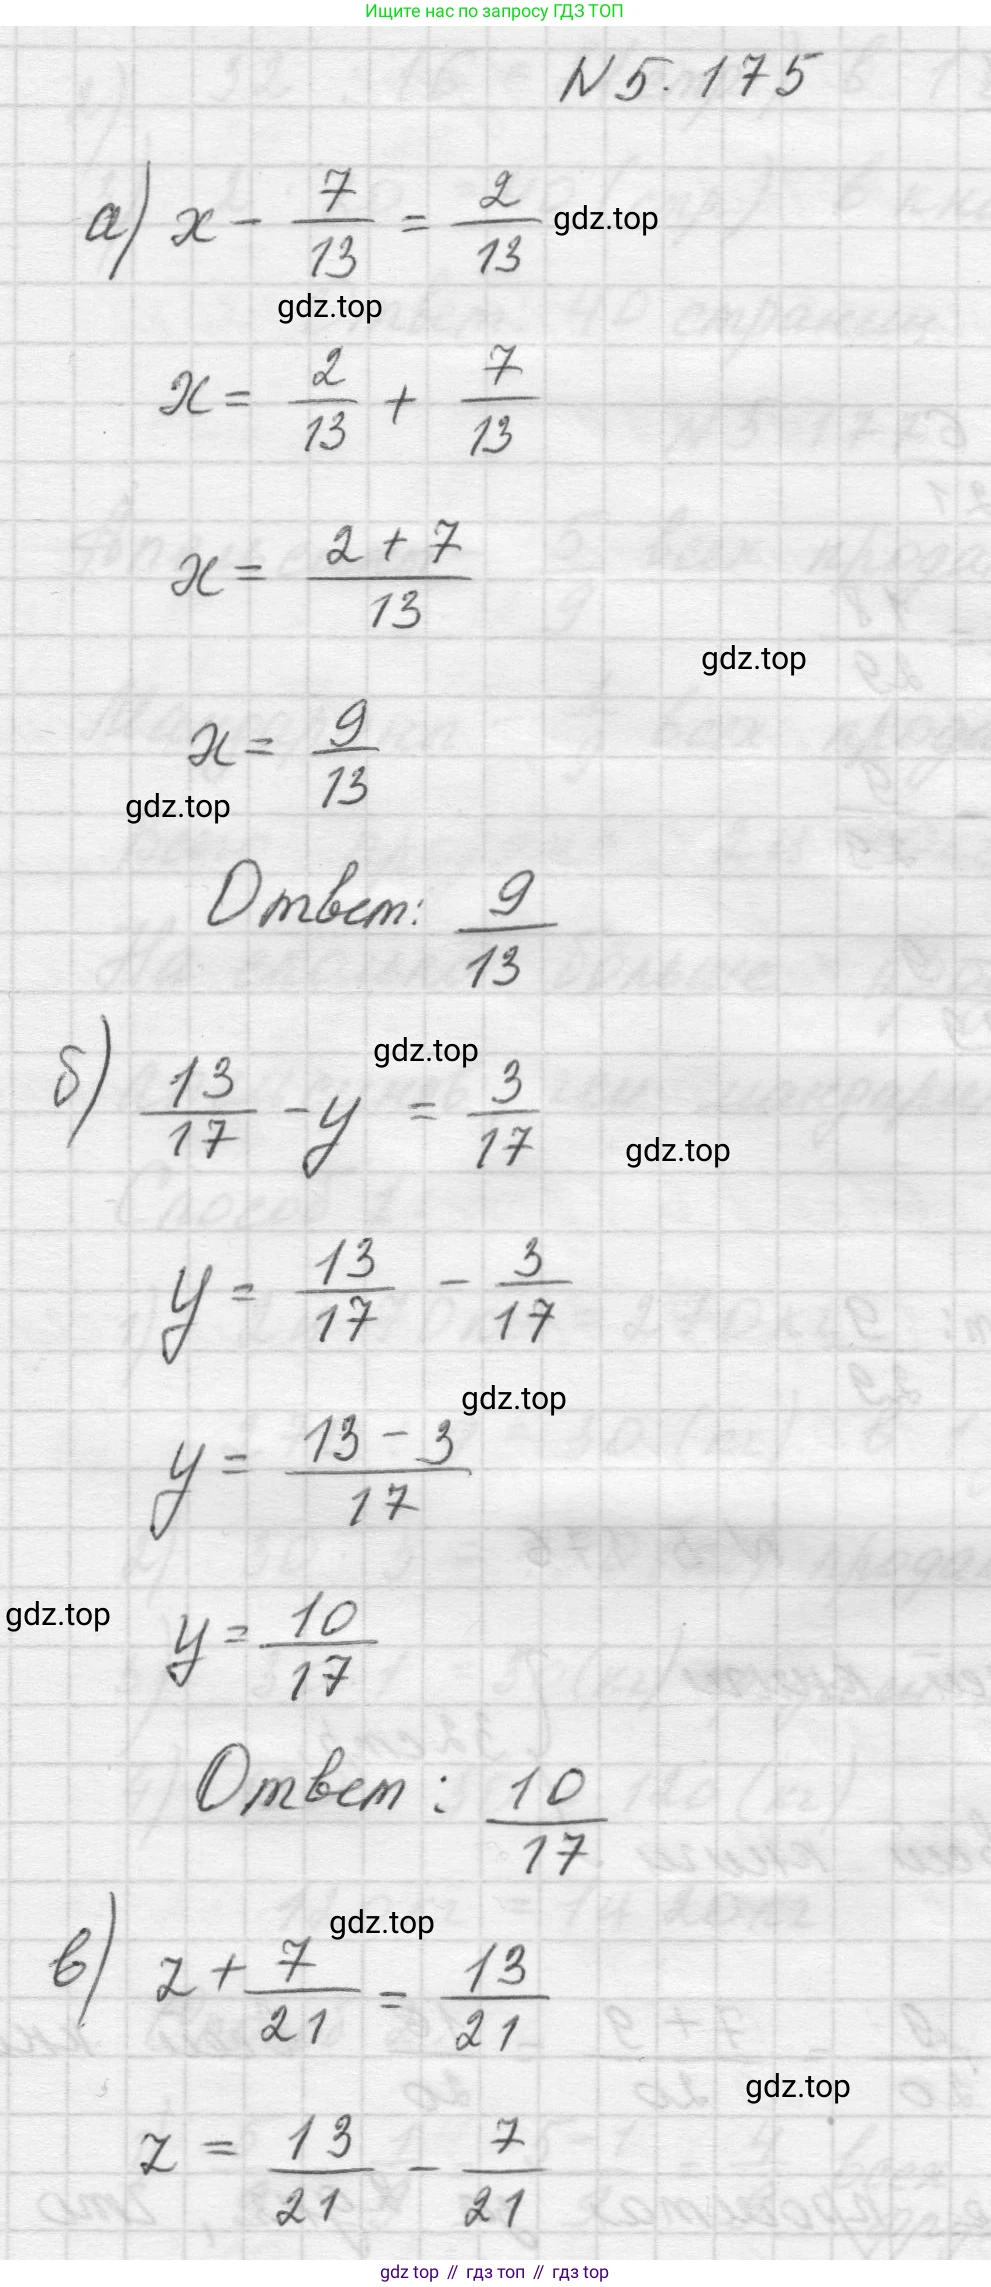 Ищите нас по запросу ГДЗ ТОП
N 5.175
а) x - 7/13 = 2/13
gdz.top
gdz.top
x = 2/13 + 7/13
x = (2 + 7)/13
gdz.top
x = 9/13
gdz.top
Ответ: 9/13
gdz.top
б) 13/17 - y = 3/17
gdz.top
y = 13/17 - 3/17
gdz.top
y = (13 - 3)/17
gdz.top
y = 10/17
Ответ: 10/17
gdz.top
в) z + 7/21 = 13/21
gdz.top
z = 13/21 - 7/21
gdz top // гдз топ // гдз top